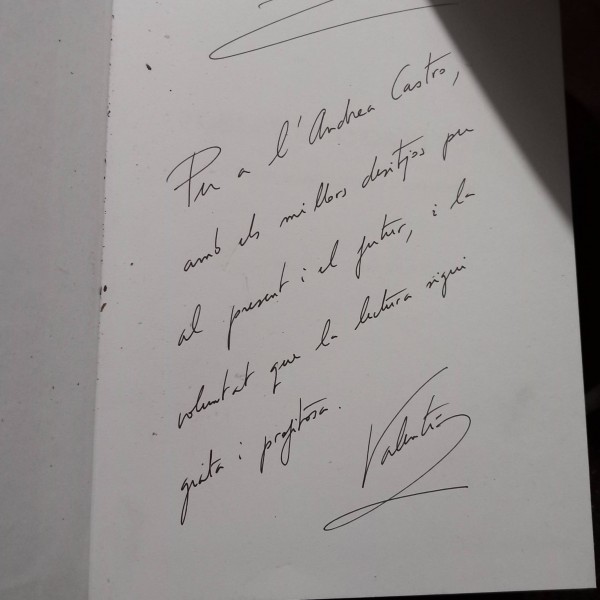 Per a l'Andrea Castro,
amb els millors desitjos per
al present i el futur, i la
voluntat que la lectura sigui
grata i profitosa.
Valentín